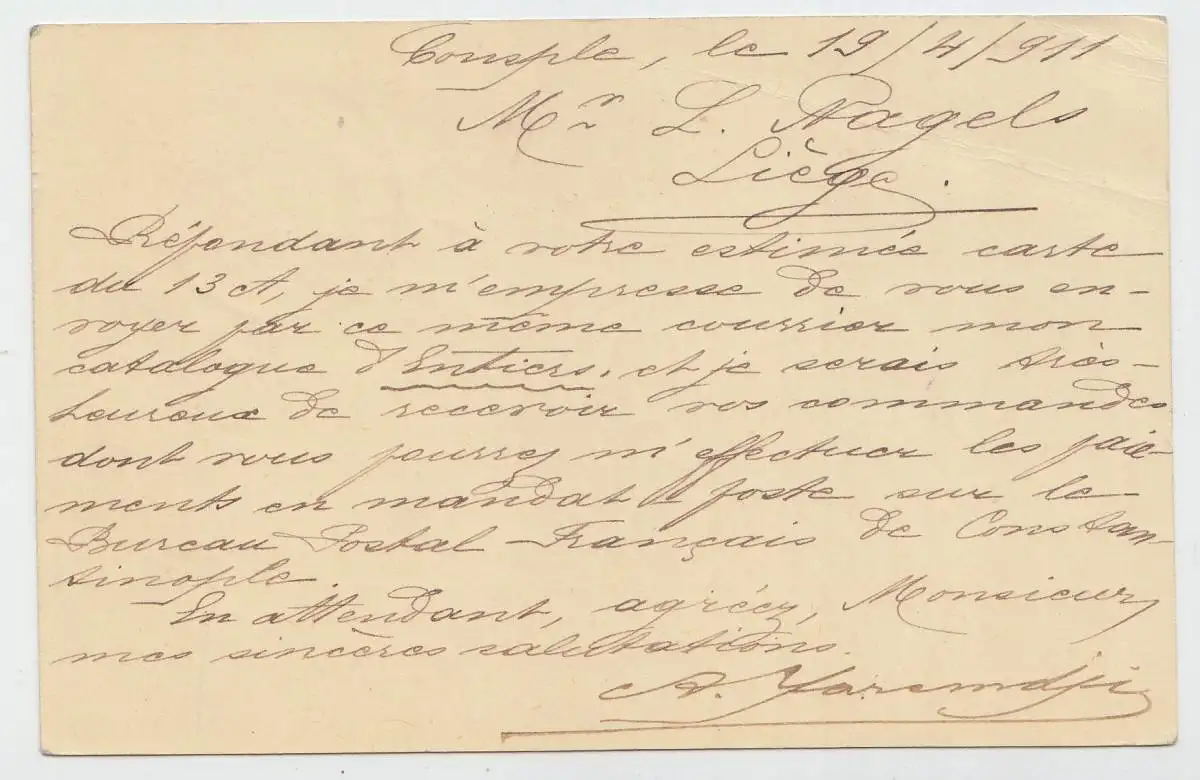 Consple, le 19/4/911
Mr L. Nagels
Liège.
Répondant à votre estimée carte
du 13 ct, je m'empresse de vous en-
voyer par ce même courrier mon
catalogue d'Entiers, et je serais très-
heureux de recevoir vos commandes
dont vous pourrez m'effectuer les paie-
ments en mandat poste sur le
Bureau Postal Français de Constan-
tinople.
En attendant, agréez, Monsieur,
mes sincères salutations.
A. Yaremdji